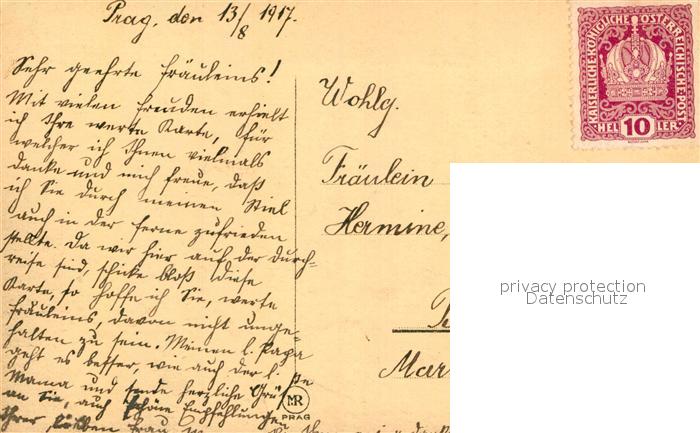 Prag, den 13/8 1917.
Sehr geehrte Fräuleins!
Mit vielen Freuden erhielt
ich Ihre werte Karte, für
welcher ich Ihnen vielmals
danke und mich freue, daß
ich Sie durch meinen Stiel
auch in der ferne zufrieden
stellte. Da wir hier auf der Durch-
reise sind, schicke bloß diese
Karte, so hoffe ich Sie, werte
Fräuleins, davon nicht unge-
halten zu sein. Meinen l. Papa
geht es besser, wie auch der l.
Mama und sende herzliche Grüße
an Sie, auch schöne Empfehlungen
Ihrer lieben Frau
Wohlg.
Fräulein
Hermine,
Mar
KAISERLICHE KÖNIGLICHE ÖSTERREICHISCHE POST
HEL 10 LER
MR
PRAG
privacy protection
Datenschutz